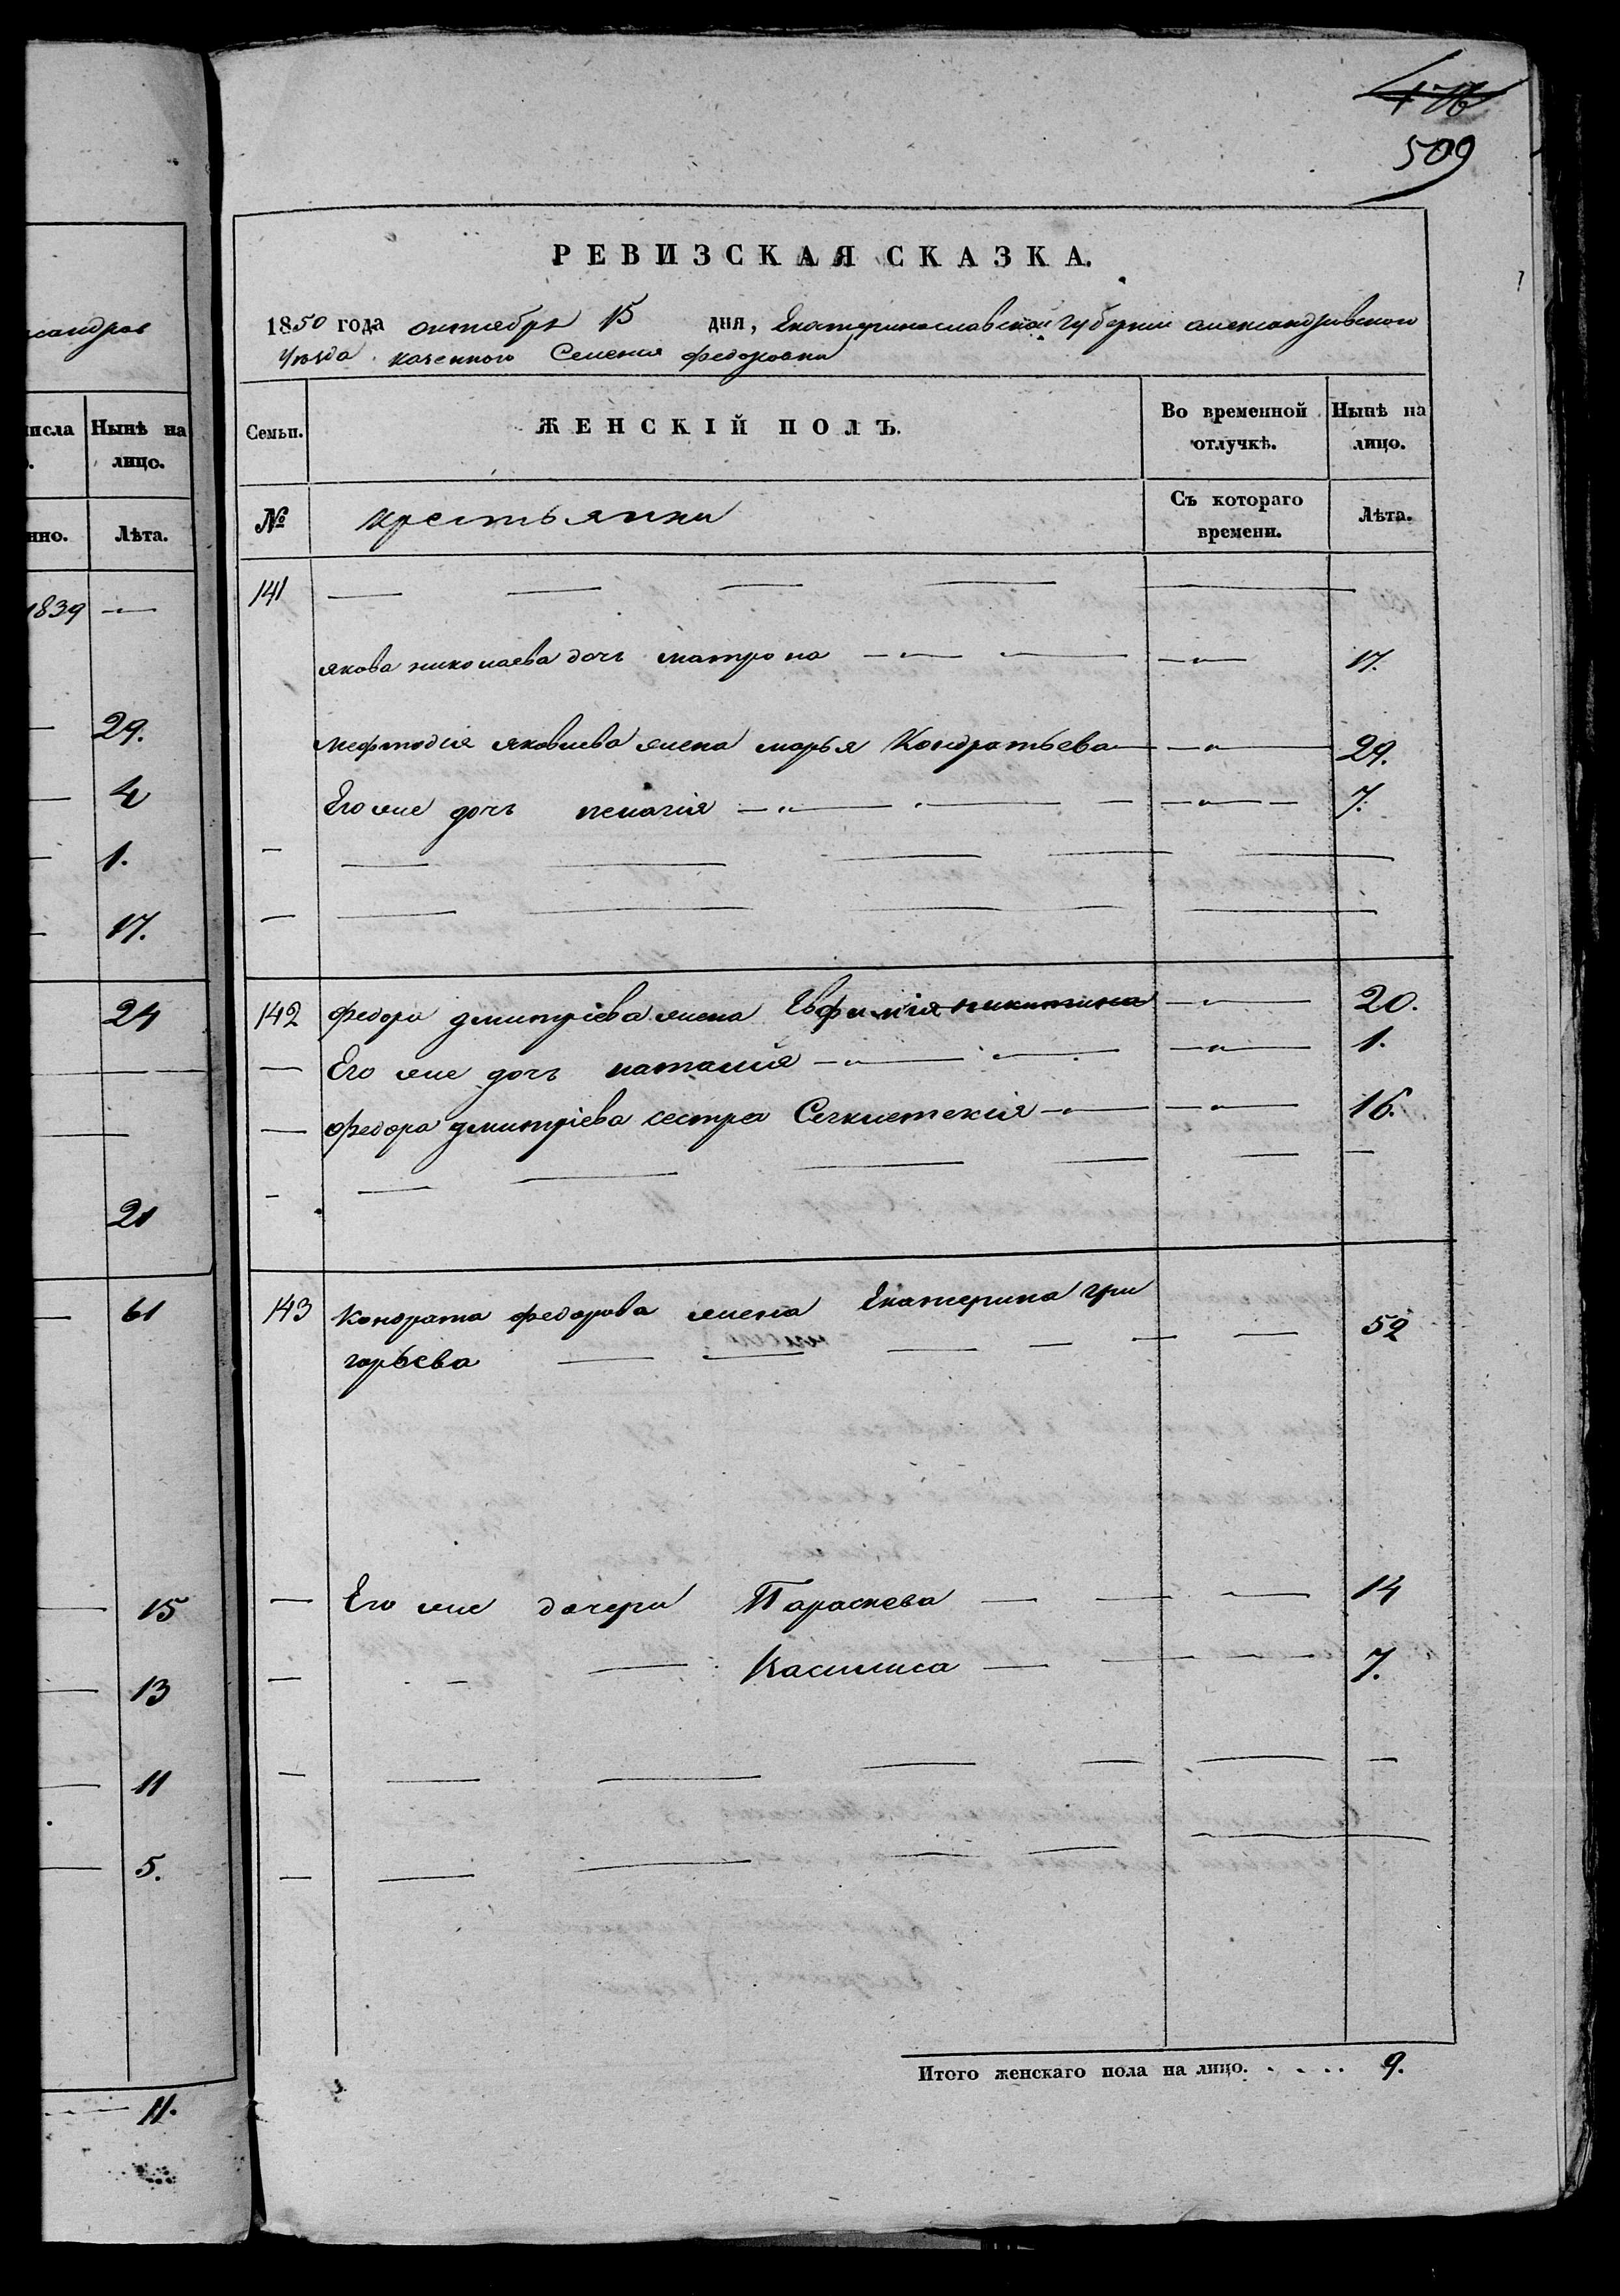 476
509
РЕВИЗСКАЯ СКАЗКА.
1850 года октября 15 дня, Екатеринославской губернии александровского
уѣзда казенного Селения федоровки
Семьи.
ЖЕНСКІЙ ПОЛЪ.
Во временной отлучкѣ.
Нынѣ на лицо.
№
крестьянки
Съ котораго времени.
Лѣта.
141
якова николаева дочь матрона 17.
мефтодия яковлева жена марья Кондратьева 29.
Его же дочь пелагія 7.
142 федора дмитріева жена Евфимія никитина 20.
Его же дочь наталия 1.
федора дмитріева сестра 16.
143 Кондрата федорова жена Екатерина гри
горьева 52
Его же дочери Параскева 14
Василиса 7.
Итого женскаго пола на лицо. . . . . 9.
сандров
исла
Нынѣ на лицо.
нно.
Лѣта.
1839
29.
4
1.
17.
24
21
61
15
13
11
5.
11.